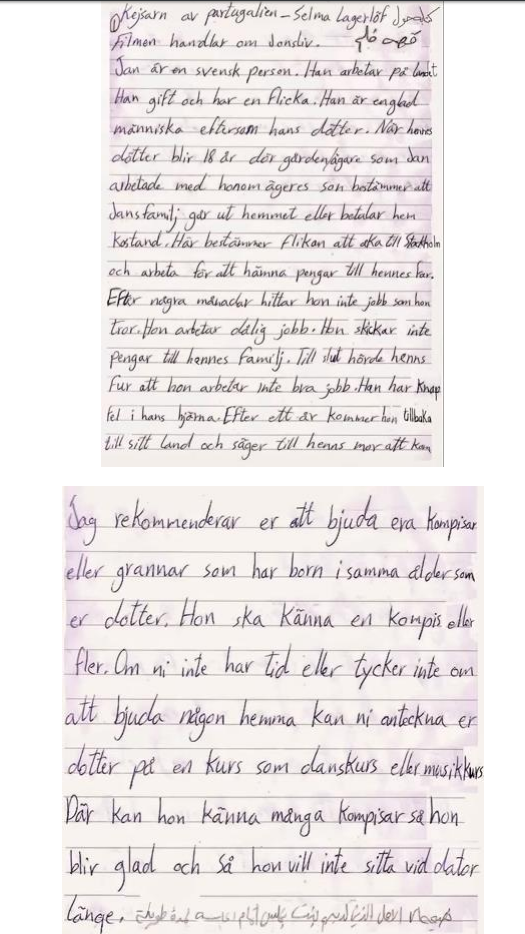 ① Kejsarn av partugalien - Selma Lagerlöf
Filmen handlar om Jonsliv.
Jan är en svensk person. Han arbetar på landt
Han gift och har en flicka. Han är englad
människa eftersom hans dotter. När hones
dotter blir 18 år dör gårdenägare som Jan
arbetade med honom ägeres son bestämmer att
Jansfamilj går ut hemmet eller betalar hem
kostand. Här bestämmer flikan att aka till Stockholm
och arbeta för att hämna pengar till hennes Far.
Efter några månadar hittar hon inte jobb som hon
tror. Hon arbetar dålig jobb. Hon skickar inte
pengar till hannes familj. Till slut hörde henns
Fur att hon arbetar inte bra jobb. Han har knap
fel i hans hjärna. Efter ett år kommer hon tillbaka
till sitt land och säger till henns mor att kan
Jag rekommenderar er att bjuda era kompisar
eller grannar som har born i samma ålder som
er dotter. Hon ska känna en kompis eller
fler. Om ni inte har tid eller tycker inte om
att bjuda någon hemma kan ni anteckna er
dotter på en kurs som danskurs eller musikkurs
Där kan hon känna många kompisar så hon
blir glad och så hon vill inte sitta vid dator
länge.